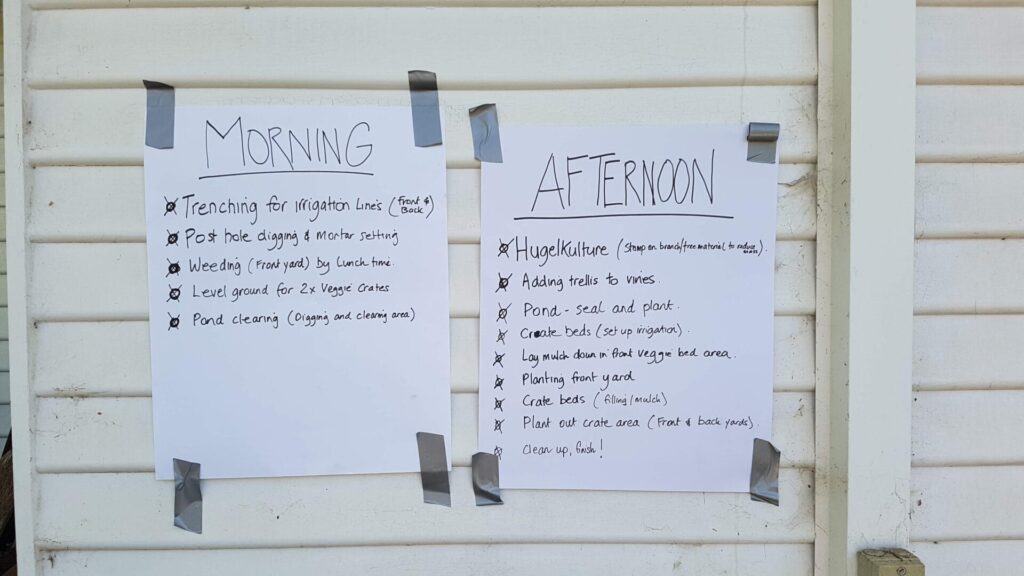 MORNING
Trenching for irrigation Lines (Front & Back)
Post hole digging & Mortar setting
Weeding (Front yard) by Lunch time.
Level ground for 2x Veggie Crates
Pond clearing (Digging and clearing area)
AFTERNOON
HugelKulture (Stomp on branch/tree material to reduce).
Adding trellis to vines.
Pond - seal and plant.
Create beds (set up irrigation).
Lay mulch down in front veggie bed area.
Planting front yard
Crate beds (filling/mulch)
Plant out crate area (Front & back yards).
Clean up, finish!